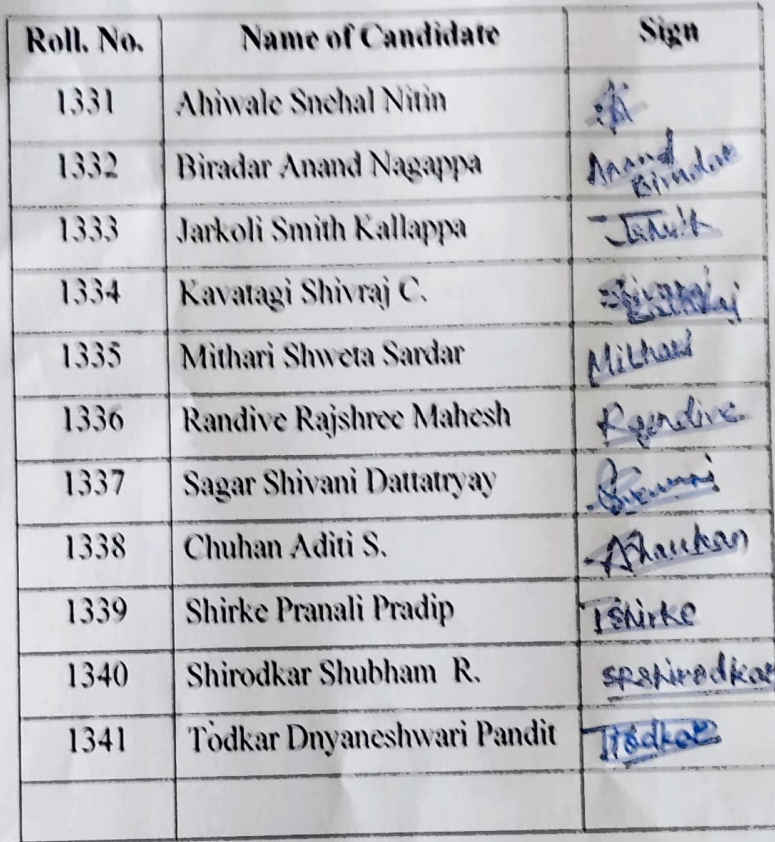 Roll. No. Name of Candidate Sign
1331 Ahiwale Snehal Nitin
1332 Biradar Anand Nagappa Anand Biradar
1333 Jarkoli Smith Kallappa
1334 Kavatagi Shivraj C.
1335 Mithari Shweta Sardar Mithari
1336 Randive Rajshree Mahesh Randive
1337 Sagar Shivani Dattatryay
1338 Chuhan Aditi S. AChauhan
1339 Shirke Pranali Pradip Pshirke
1340 Shirodkar Shubham R. SRshirodkar
1341 Todkar Dnyaneshwari Pandit